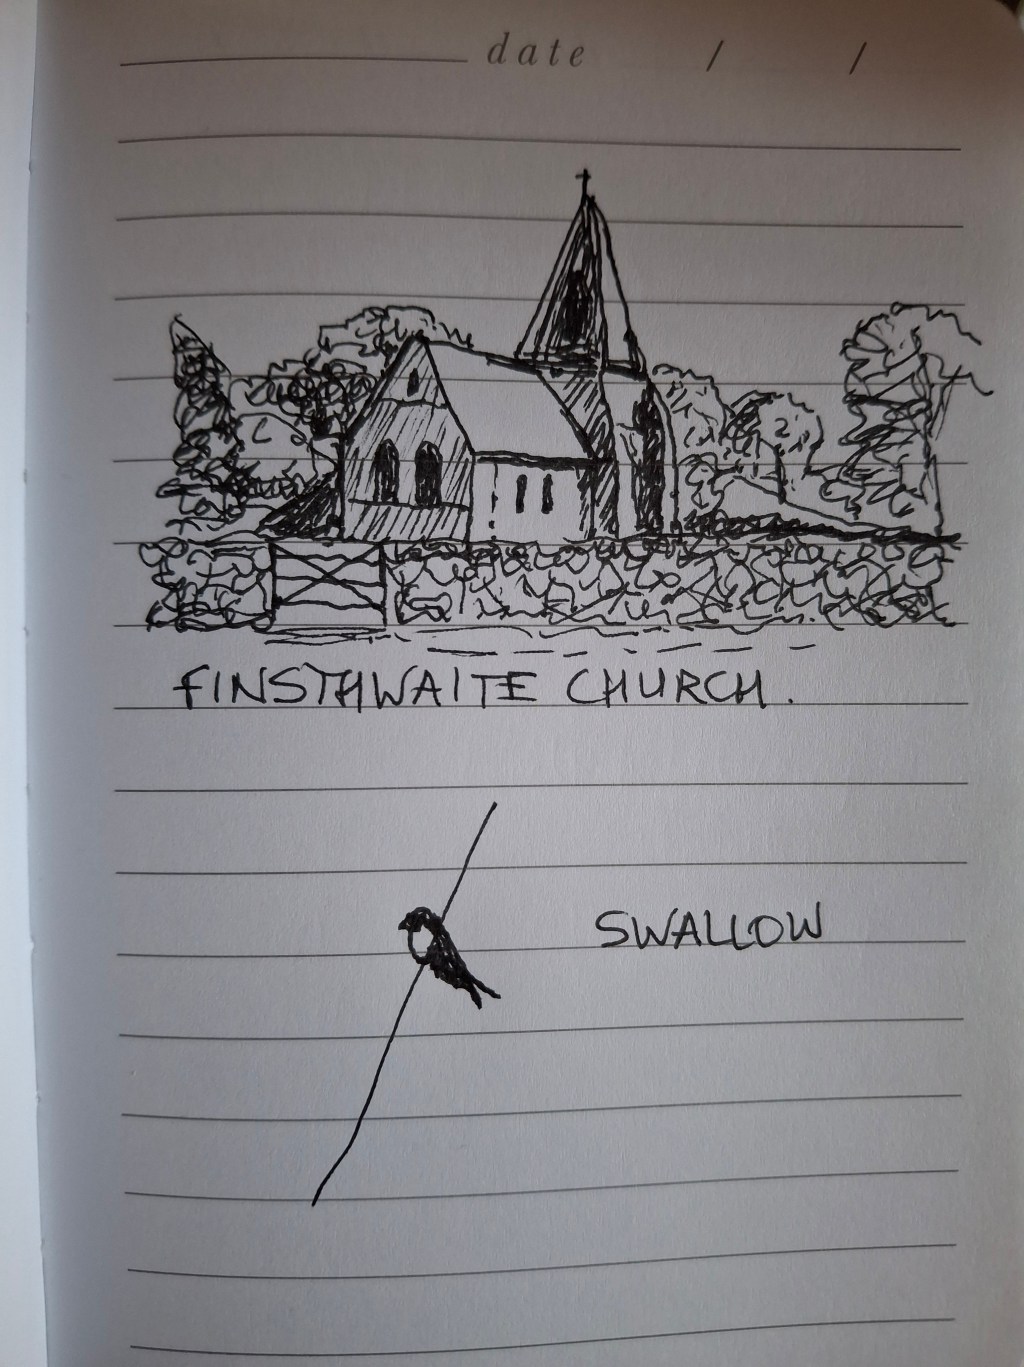 date / /
FINSTHWAITE CHURCH.
SWALLOW